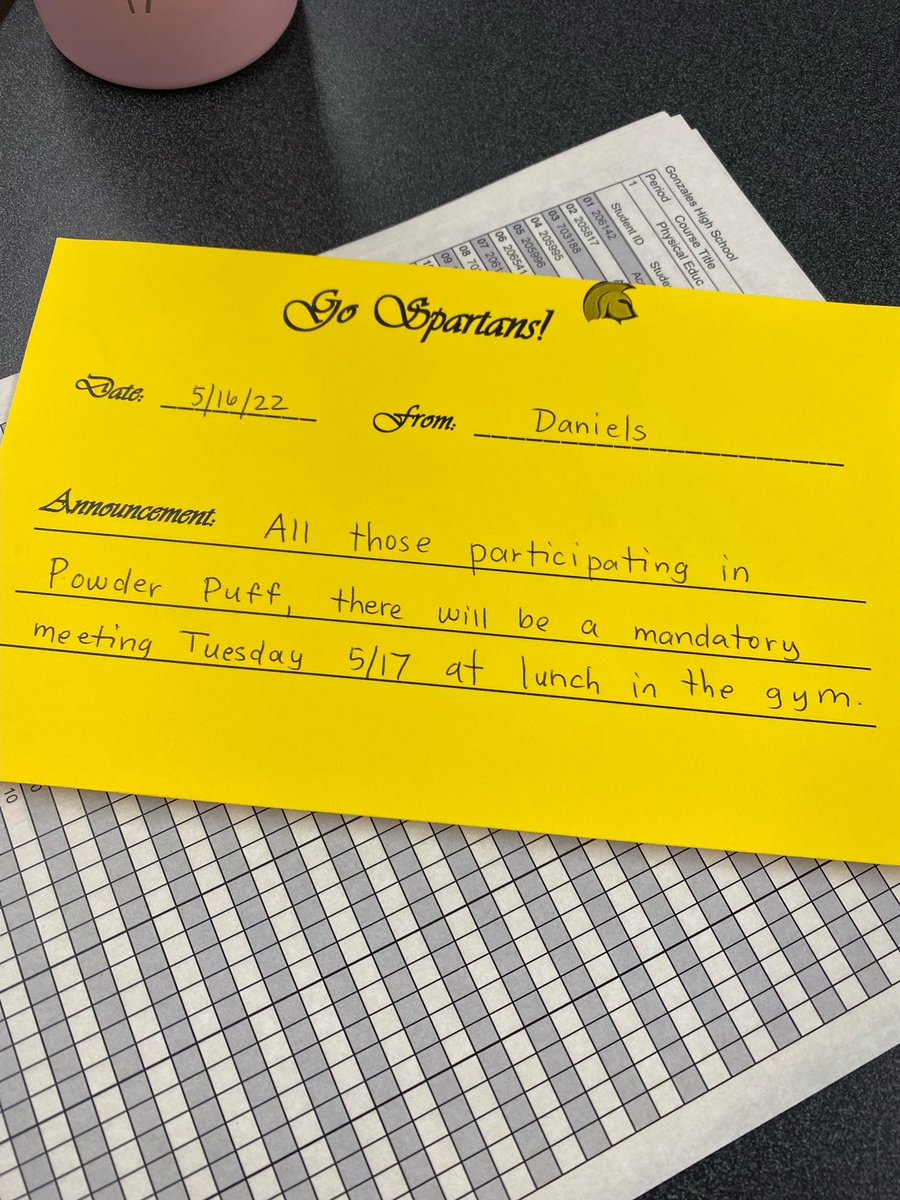 Gonzales High School
Period Course Title
1 Physical Educ
Student ID
01 206142
02 205817
03 703188
04 205995
05 205996
06 206541
07 2061
08 70
09
Go Spartans!
Date: 5/16/22 From: Daniels
Announcement: All those participating in
Powder Puff, there will be a mandatory
meeting Tuesday 5/17 at lunch in the gym.
10